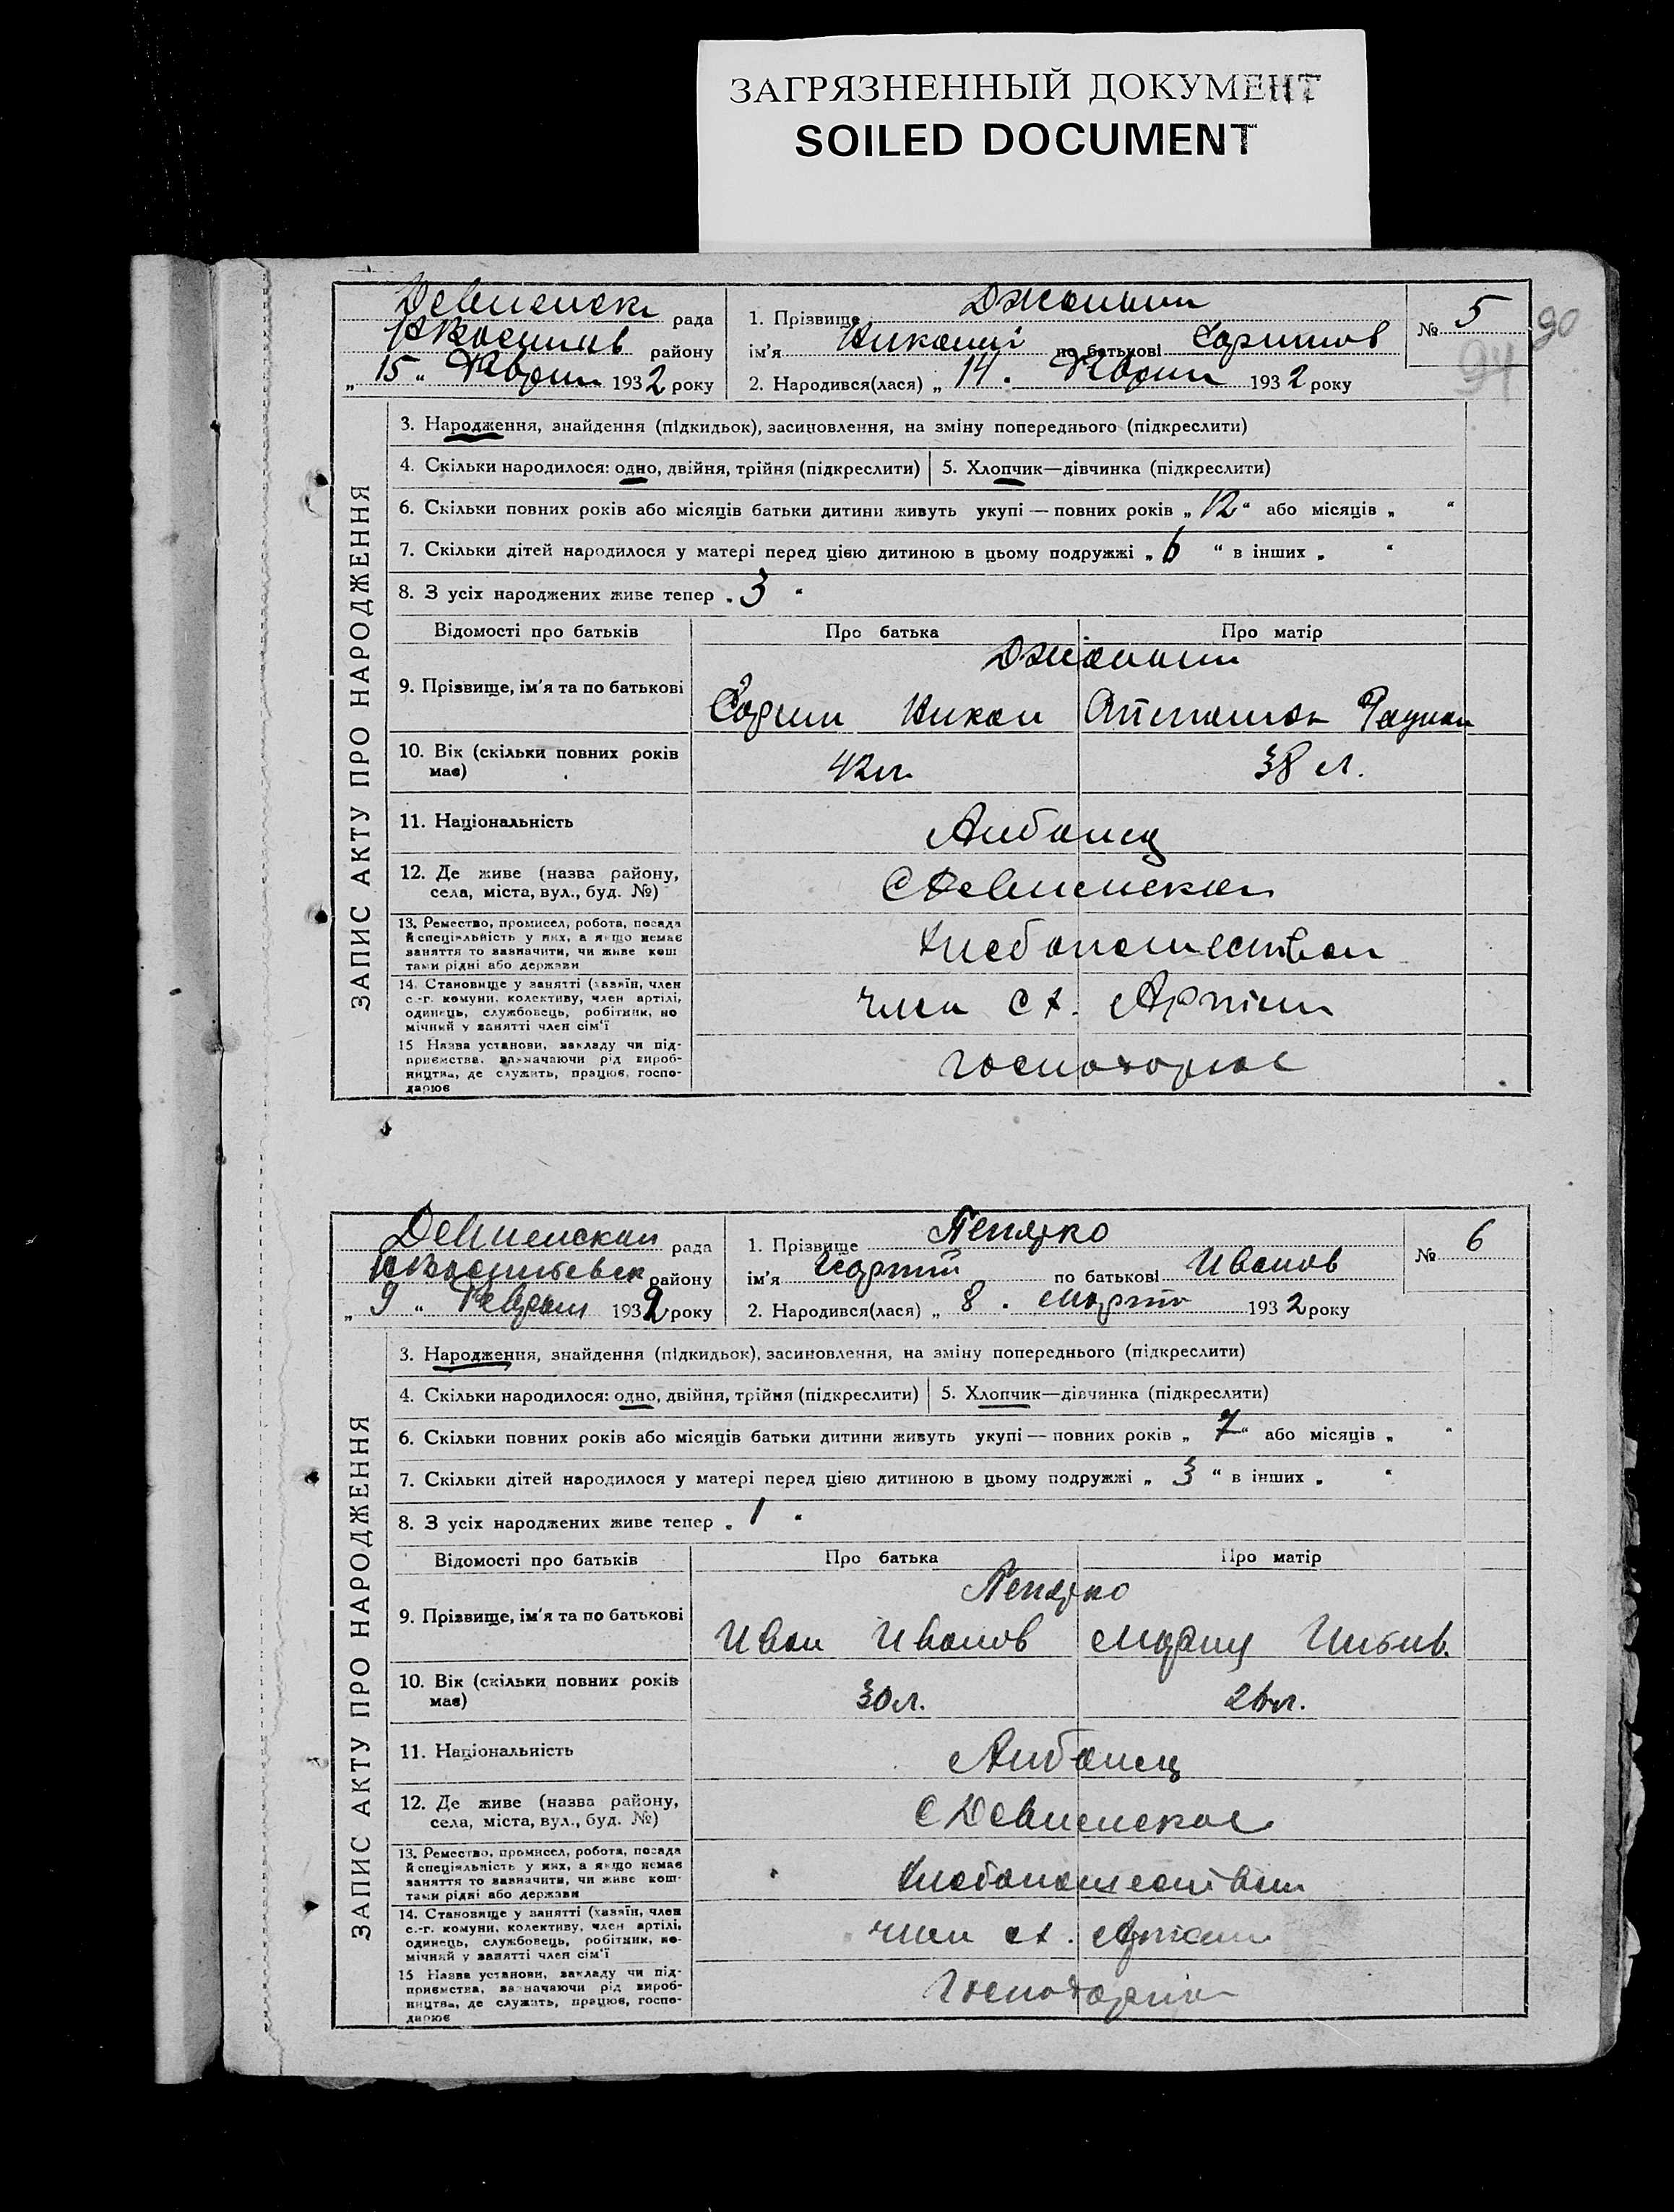 ЗАГРЯЗНЕННЫЙ ДОКУМЕНТ
SOILED DOCUMENT
рада
району
„ 15 “ 1932 року
1. Прізвище
ім'я Николай по батькові
2. Народився(лася) „ 14 . 1932 року
№ 5
90
94
ЗАПИС АКТУ ПРО НАРОДЖЕННЯ
3. Народження, знайдення (підкидьок), засиновлення, на зміну попереднього (підкреслити)
4. Скільки народилося: одно, двійня, трійня (підкреслити)
5. Хлопчик—дівчинка (підкреслити)
6. Скільки повних років або місяців батьки дитини живуть укупі — повних років „ 12 “ або місяців „ “
7. Скільки дітей народилося у матері перед цією дитиною в цьому подружжі „ 6 “ в інших „ “
8. З усіх народжених живе тепер „ 3 “
Відомості про батьків
Про батька
Про матір
9. Прізвище, ім'я та по батькові
10. Вік (скільки повних років
має)
42 л.
38 л.
11. Національність
Албанец
12. Де живе (назва району,
села, міста, вул., буд. №)
13. Ремество, промисел, робота, посада
й спеціяльність у них, а якщо немає
заняття то зазначити, чи живе кош
тами рідні або держави
Хлебопашество
14. Становище у занятті (хазяїн, член
с.-г. комуни, колективу, член артілі,
одинець, службовець, робітник, по
мічний у занятті член сім'ї
член с х. Артели
15 Назва установи, закладу чи під-
приємства, зазначаючи рід вироб-
ництва, де служить, працює, госпо-
дарює
рада
району
„ 9 “ 1932 року
1. Прізвище
ім'я по батькові Иванов
2. Народився(лася) „ 8 . Марта 1932 року
№ 6
ЗАПИС АКТУ ПРО НАРОДЖЕННЯ
3. Народження, знайдення (підкидьок), засиновлення, на зміну попереднього (підкреслити)
4. Скільки народилося: одно, двійня, трійня (підкреслити)
5. Хлопчик—дівчинка (підкреслити)
6. Скільки повних років або місяців батьки дитини живуть укупі — повних років „ 7 “ або місяців „ “
7. Скільки дітей народилося у матері перед цією дитиною в цьому подружжі „ 3 “ в інших „ “
8. З усіх народжених живе тепер „ 1 “
Відомості про батьків
Про батька
Про матір
9. Прізвище, ім'я та по батькові
Иван Иванов
Мария
10. Вік (скільки повних років
має)
30 л.
26 л.
11. Національність
Албанец
12. Де живе (назва району,
села, міста, вул., буд. №)
13. Ремество, промисел, робота, посада
й спеціяльність у них, а якщо немає
заняття то зазначити, чи живе кош-
тами рідні або держави
Хлебопашество
14. Становище у занятті (хазяїн, член
с.-г. комуни, колективу, член артілі,
одинець, службовець, робітник, по-
мічний у занятті член сім'ї
член с х. Артели
15 Назва установи, закладу чи під-
приємства, зазначаючи рід вироб-
ництва, де служить, працює, госпо-
дарює